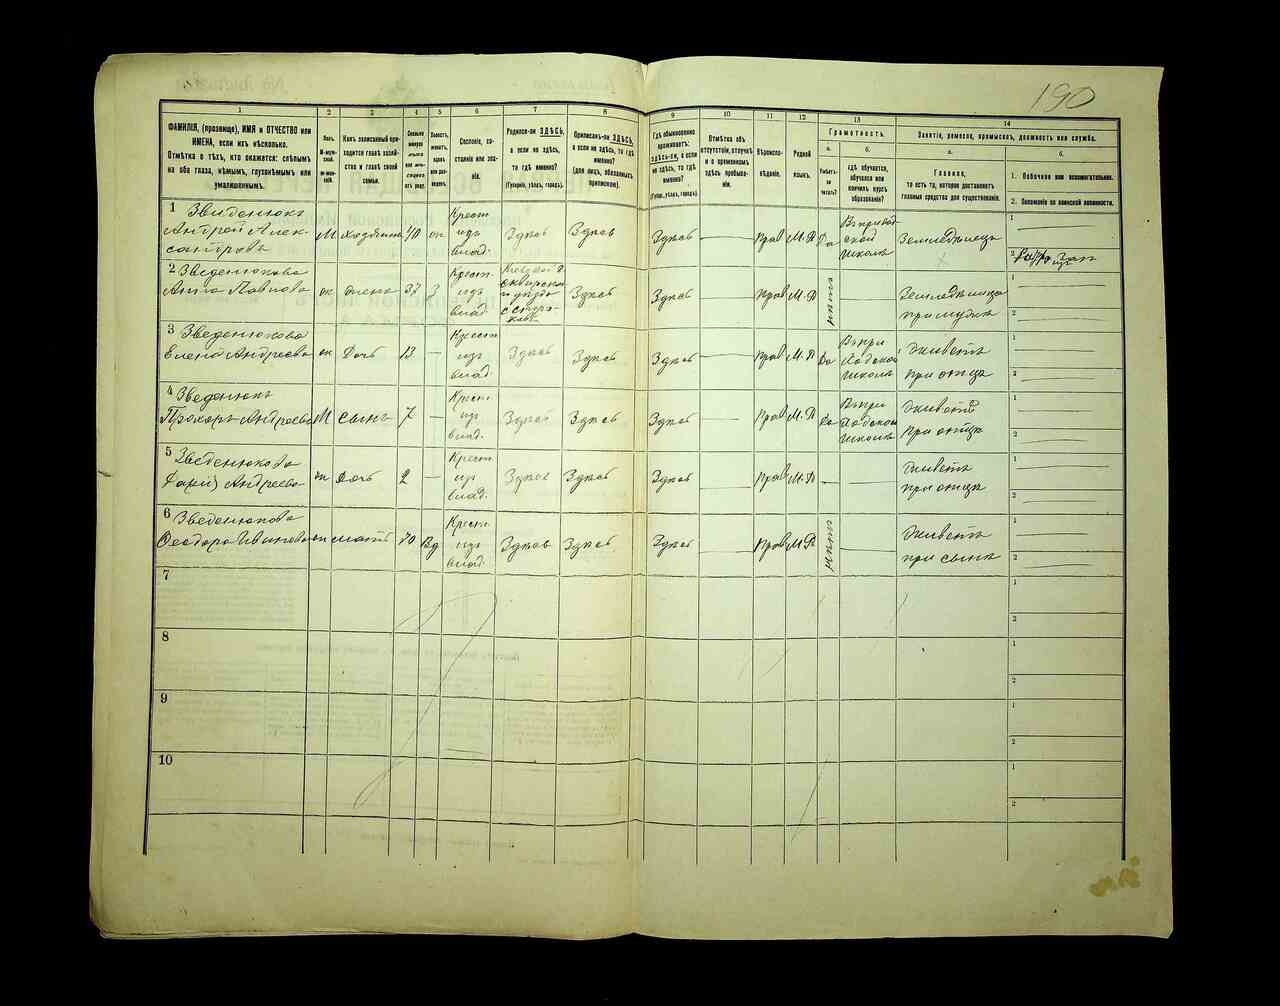 190
1 2 3 4 5 6 7 8 9 10 11 12 13 14
ФАМИЛІЯ, (прозвище), ИМЯ и ОТЧЕСТВО или
ИМЕНА, если ихъ нѣсколько.
Отмѣтка о тѣхъ, кто окажется: слѣпымъ
на оба глаза, нѣмымъ, глухонѣмымъ или
умалишеннымъ.
Полъ.
М-мужской.
Ж-женскій.
Какъ записанный приходится главѣ хозяйства и главѣ своей
семьи.
Сословіе, состояніе или званіе.
Родился-ли ЗДѢСЬ,
а если не здѣсь,
то гдѣ именно?
(Губернія, уѣздъ, городъ).
Приписанъ-ли ЗДѢСЬ,
а если не здѣсь, то гдѣ
именно?
(для лицъ, обязанныхъ
припискою).
Гдѣ обыкновенно
проживаетъ:
ЗДѢСЬ-ли, а если
не здѣсь, то гдѣ
именно?
(Губ., уѣздъ, городъ).
Отмѣтка объ
отсутствіи, отлучкѣ
и о временномъ
здѣсь пребываніи.
Вѣроисповѣданіе.
Родной
языкъ.
Грамотность.
а. б.
Умѣетъ-ли
читать?
гдѣ обучается,
обучался или
кончилъ курсъ
образованія?
Занятіе, ремесло, промыселъ, должность или служба.
а. б.
Главное,
то есть то, которое доставляетъ
главныя средства для существованія.
1. Побочное или вспомогательное.
2. Положеніе по воинской повинности.
1 Звиденюкъ
Андрей Александровъ М Хозяинъ 40 ж Крест. изъ влад. Здѣсь Здѣсь Здѣсь Прав М.Р Да Въ приходской школѣ Земледѣлецъ
2 Зведенюкова
Анна Павлова ж жена 37 з Крест. изъ влад. Здѣсь Здѣсь Прав М.Р нѣтъ Земледѣлица при мужѣ
3 Зведенюкова
Елена Андреева ж Дочь 13 — Крест. изъ влад. Здѣсь Здѣсь Здѣсь Прав М.Р Да Въ приходской школѣ Живетъ при отцѣ
4 Зведенюкъ
Прохоръ Андреевъ М сынъ 7 — Крест. изъ влад. Здѣсь Здѣсь Здѣсь Прав М.Р Да Въ приходской школѣ Живетъ при отцѣ
5 Зведенюкова
Андреева ж Дочь 2 — Крест. изъ влад. Здѣсь Здѣсь Здѣсь Прав М.Р — Живетъ при отцѣ
6 Зведенюкова
Феодора Иванова ж мать 70 Вд Крест. изъ влад. Здѣсь Здѣсь Здѣсь Прав М.Р нѣтъ Живетъ при сынѣ
7
8
9
10